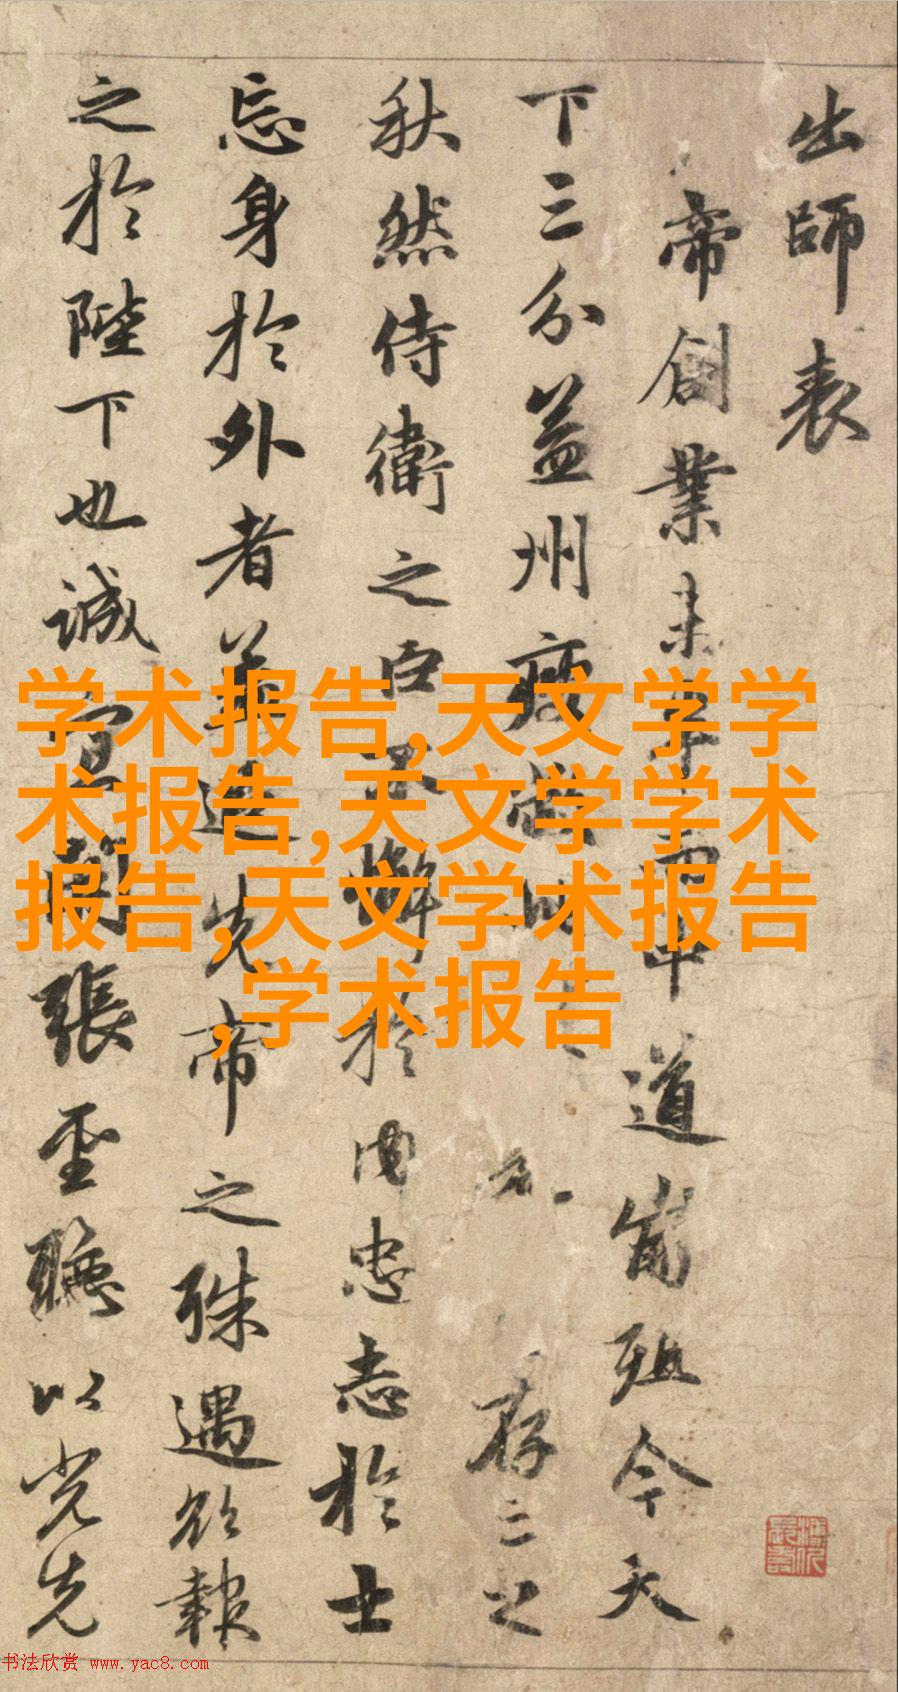 出師表
帝創業未半而中道崩殂今天
下三分益州疲 存亡之
秋然侍衛之臣不懈於内忠志於士
忘身於外者蓋追先帝之殊遇欲報
之於陛下也誠宜開張聖聽以光先
学术报告,天文学学
术报告,天文学学术
报告,天文学术报告
,学术报告
书法欣赏 www.yac8.com